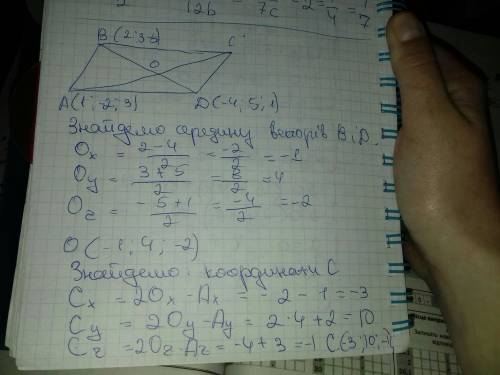 12b 7c =2= 4 = 1/7
B (2;3;-5) C
O
A(1;-2;3) D(-4;5;1)
Знайдемо середину векторів B i D.
Ox = (2-4)/2 = -2/2 = -1
Oy = (3+5)/2 = 8/2 = 4
Oz = (-5+1)/2 = -4/2 = -2
O (-1; 4; -2)
Знайдемо: координати C
Cx = 2Ox - Ax = -2 -1 = -3
Cy = 2Oy - Ay = 2·4+2 = 10
Cz = 2Oz - Az = -4+3 = -1 C(-3;10;-1)